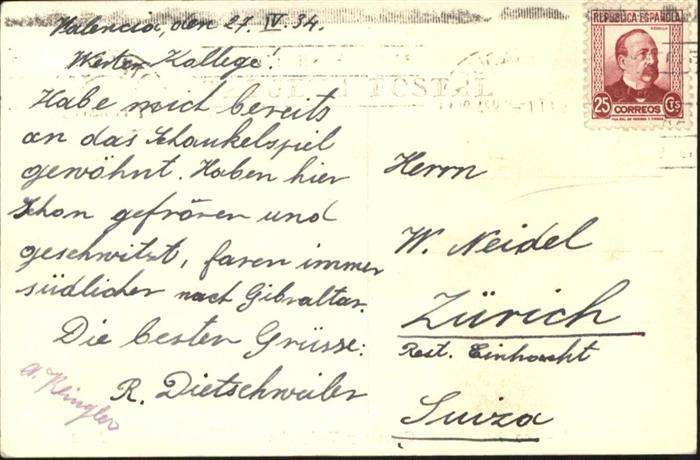 Valencia, den 27. IV. 34.
Werter Kollege!
Habe mich bereits
an das Schaukelspiel
gewöhnt. Haben hier
schon gefroren und
geschwitzt, faren immer
südlicher nach Gibraltar.
Die besten Grüsse:
R. Dietschweiler
A. Klingler
REPUBLICA ESPAÑOLA
25 CTS
CORREOS
POSTAL
Herrn
W. Neidel
Zürich
Rest. Einhocht
Suiza